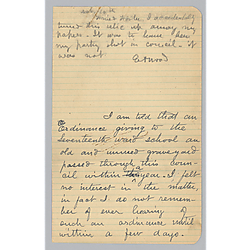 turned this relic up among my
papers. It was to have been
my party shot in council. It
was not
I am told that an
Ordinance giving to the
seventeenth ward school an
old and unused graveyard
passed through this Coun-
cil within a year. I felt
no interest in the matter,
in fact I do not remem-
ber of ever hearing of
such an ordinance until
within a few days.